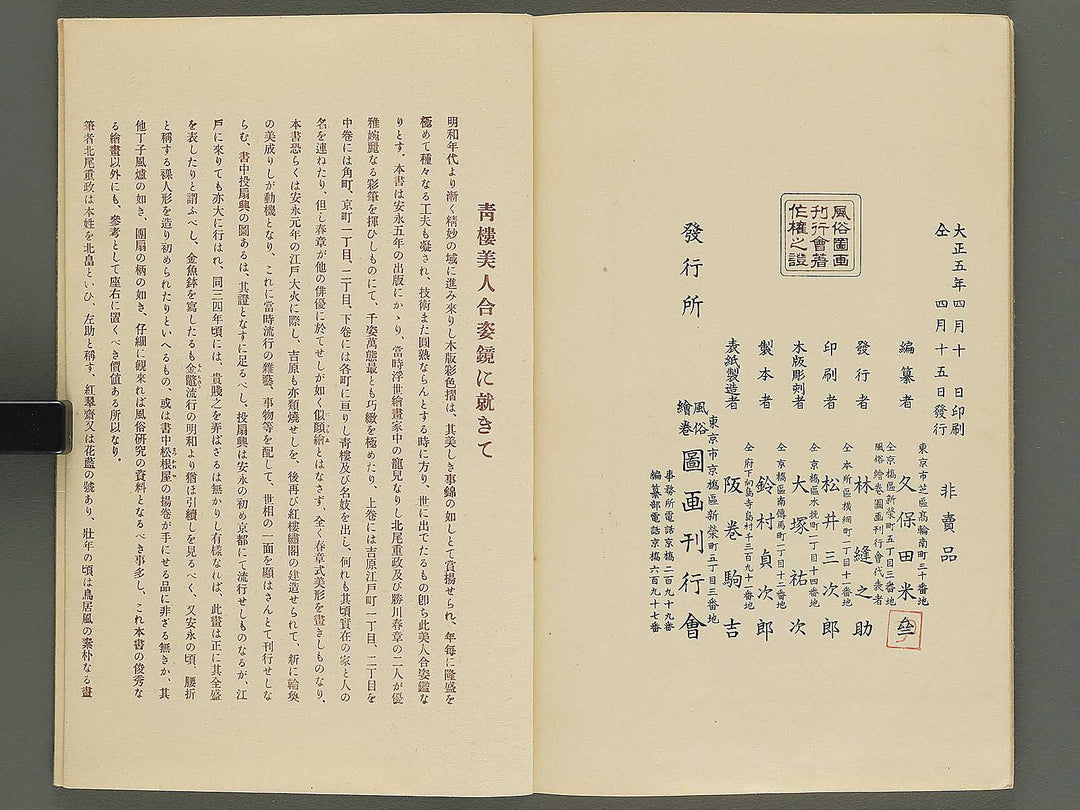 大正五年四月十日印刷
仝 四月十五日發行
非賣品
編纂者
東京市芝區髙輪南町三十番地
久保田米
發行者
仝京橋區新榮町五丁目三番地
風俗繪卷圖画刊行會代表者
林縫之助
印刷者
仝本所區横網町二丁目十一番地
松井三次郎
木版彫刻者
仝京橋區木挽町二丁目十四番地
大塚祐次
製本者
仝京橋區南傳馬町二丁目十二番地
鈴村貞次郎
表紙製造者
仝府下向島寺島村千三百九十一番地
阪巻駒吉
風俗圖画
刊行會著
作權之證
發行所
東京市京橋區新榮町五丁目三番地
風俗繪卷圖画刊行會
事務所電話京橋二百九十九番
編纂部電話京橋六百九十七番
青樓美人合姿鏡に就きて
明和年代より漸く精妙の域に進み來りし木版彩色摺は、其美しき事錦の如しとて賞揚せられ、年毎に隆盛を
極めて種々なる工夫も凝され、技術また圓熟ならんとする時に方り、世に出でたるもの卽ち此美人合姿鑑な
りとす。本書は安永五年の出版にかゝり、當時浮世繪畫家中の寵兒なりし北尾重政及び勝川春章の二人が優
雅婉麗なる彩筆を揮ひしものにて、千姿萬態最とも巧緻を極めたり、上卷には吉原江戸町一丁目、二丁目を
中卷には角町、京町一丁目、二丁目、下卷には各町に亘りし青樓及び名妓を出し、何れも其頃實在の家と人の
名を連ねたり、但し春章が他の俳優に於てせしが如く似顔繪とはなさず、全く春章式美形を畫きしものなり。
本書恐らくは安永元年の江戸大火に際し、吉原も亦類燒せしを、後再び紅樓繡閣の建造せられて、新に輪奐
の美成りしが動機となり、これに當時流行の雜藝、事物等を配して、世相の一面を顯はさんとて刊行せしな
らむ、書中投扇興の圖あるは、其證となすに足るべし、投扇興は安永の初め京都にて流行せしものなるが、江
戸に來りても亦大に行はれ、同三四年頃には、貴賤之を弄ばざるは無かりし有樣なれば、此畫は正に其全盛
を表したりと謂ふべし、金魚鉢を寫したるも金鼈流行の明和より猶ほ引續しを見るべく、又安永の頃、腰折
と稱する裸人形を造り初められたりといへるもの、或は書中松根屋の揚卷が手にせる品に非ざる無きか、其
他丁子風爐の如き、團扇の柄の如き、仔細に觀來れば風俗研究の資料となるべき事多し、これ本書の俊秀な
る繪畫以外にも、參考として座右に置くべき價値ある所以なり。
筆者北尾重政は本姓を北畠といひ、左助と稱す、紅翠齋又は花藍の號あり、壯年の頃は鳥居風の素朴なる畫